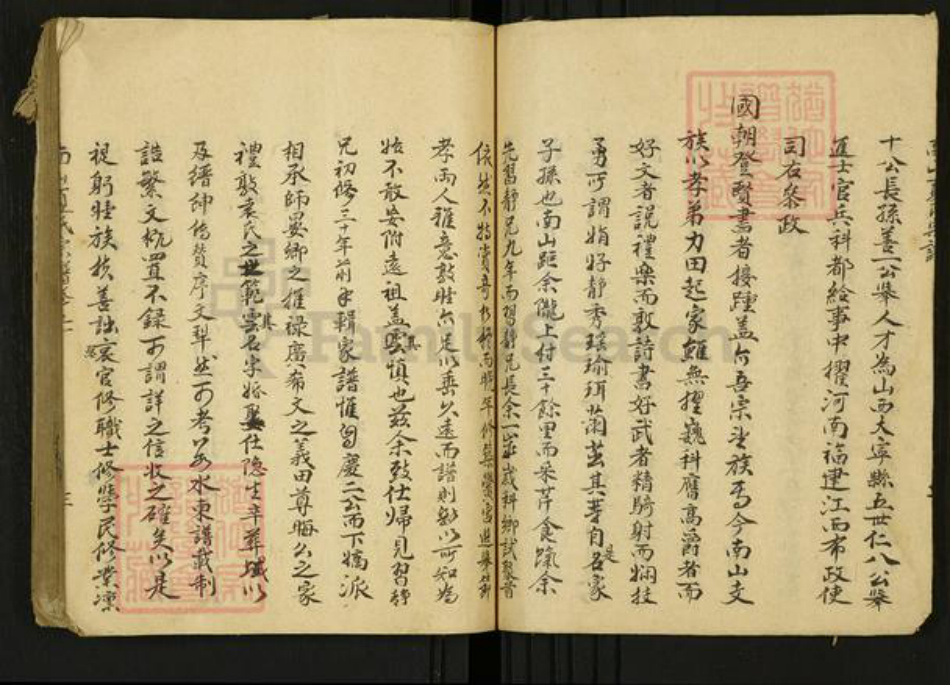 十公長孫善一公舉人才為山西大寧縣五世仁八公舉
進士官兵科都給事中擢河南福建江西布政使
司右叅政
國朝登賢書者接踵盖亦吾宗望族焉今南山支
族以孝弟力田起家雖無擢巍科膺高爵者而
好文者說禮樂而敦詩書好武者精騎射而嫻技
勇可謂娟好靜秀瑤瑜珥蘭茁其芽自是名家
子孫也南山距余隴上村三十餘里而采芹食餼余
先習靜兄九年而習靜兄長余一歲科鄉試
孝而人雅意敦睦亦足以垂久遠而譜則勉以可知為
始不敢妄附遠祖盖其慎也茲余致仕歸見習靜
兄初修三十年前手輯家譜惟自慶二公而下嫡派
相承師晏卿之推祿廣希文之義田尊晦公之家
禮敦袁氏之世範其名字婚娶仕隐生卒葬域以
及縉紳傳贊序文犁然可考若水東譜載制
誥繁文概置不録可謂詳之信收之確矣以是
禔躬睦族揚善詘惡官修職士修學民修業凛